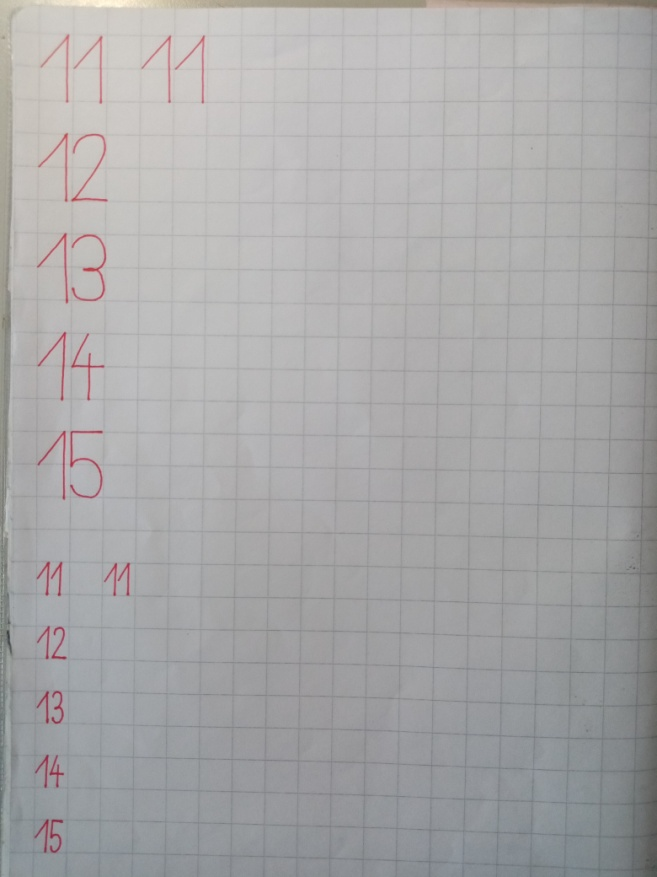 11 11
12
13
14
15
11 11
12
13
14
15